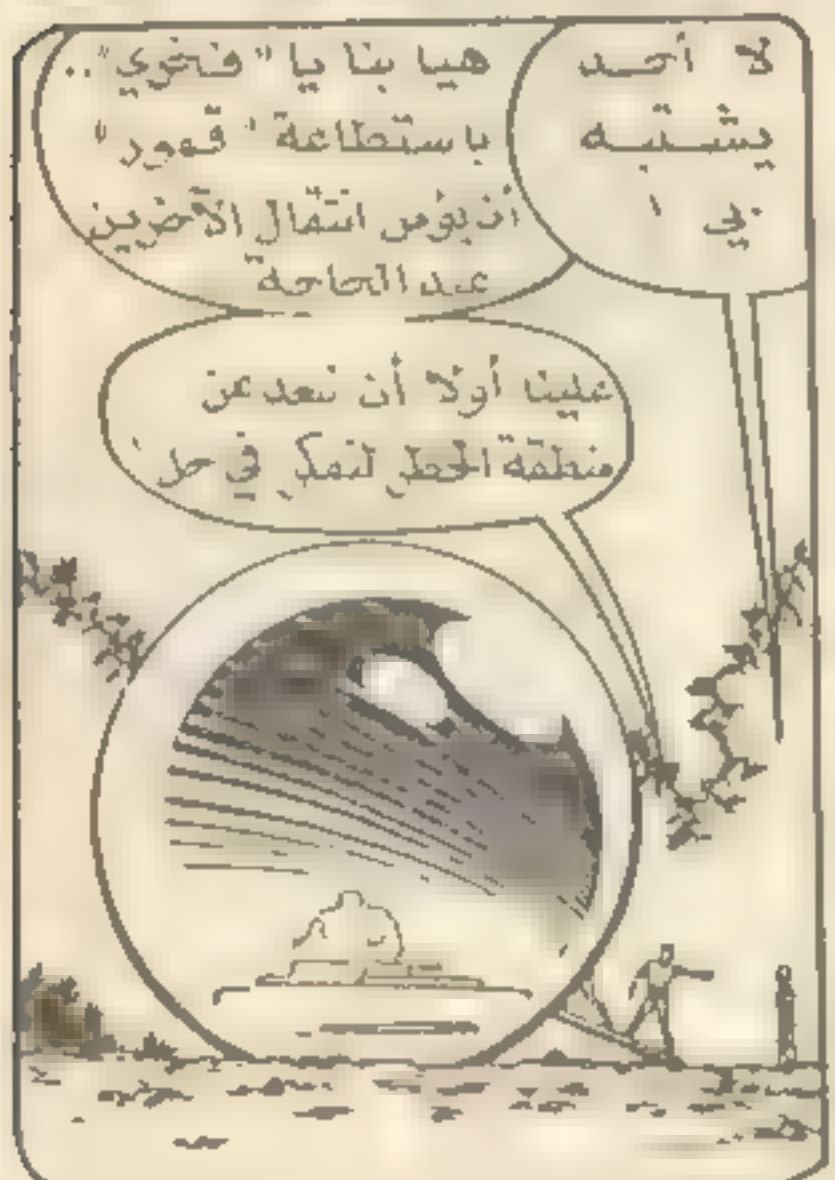 لا أحد
يشتبه
بي !
هيا بنا يا "فخري"..
باستطاعة "قمور"
أن يؤمن انتقال الآخرين
عند الحاجة
علينا أولا أن نبعد عن
منطقة الخطر لنفكر في حل